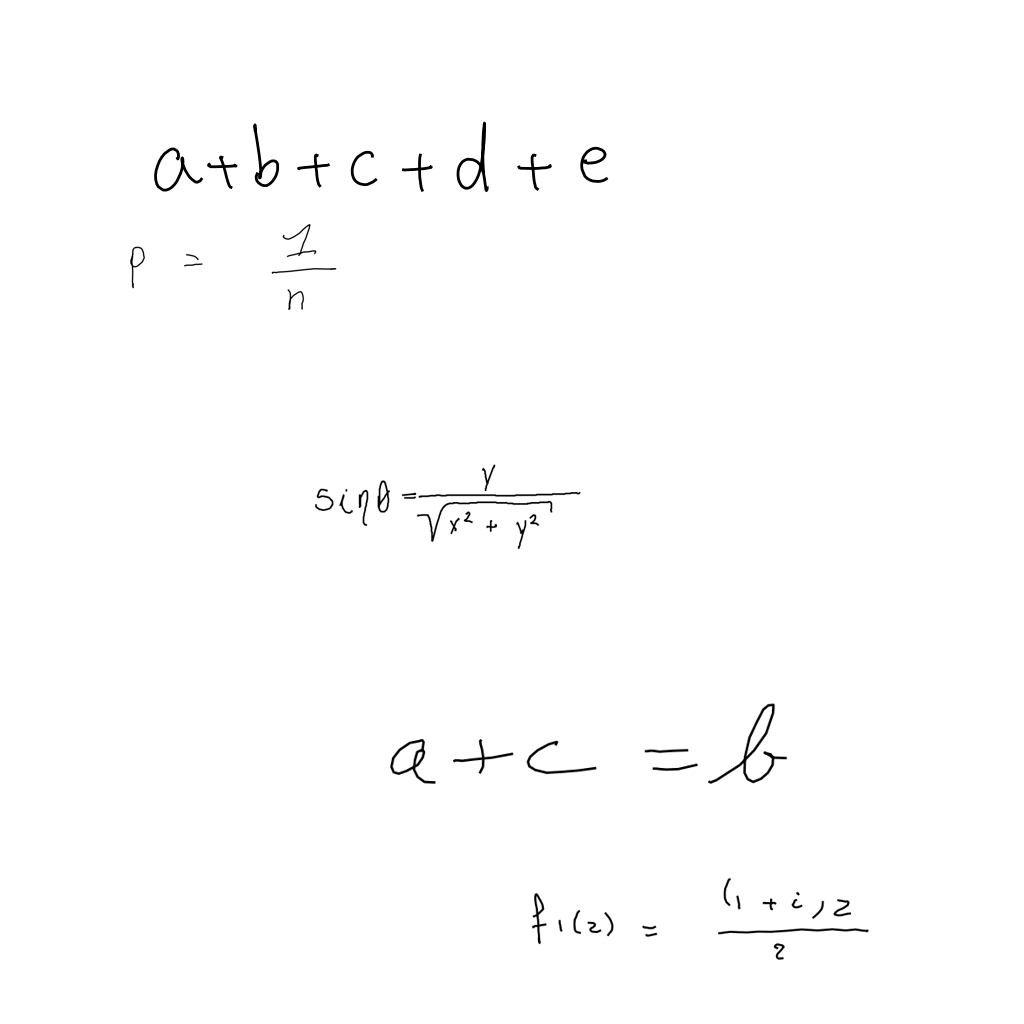 a+b+c+d+e
p = \frac{1}{n}
\sin\theta = \frac{y}{\sqrt{x^2 + y^2}}
a+c = b
f_1(z) = \frac{(1+i)z}{2}